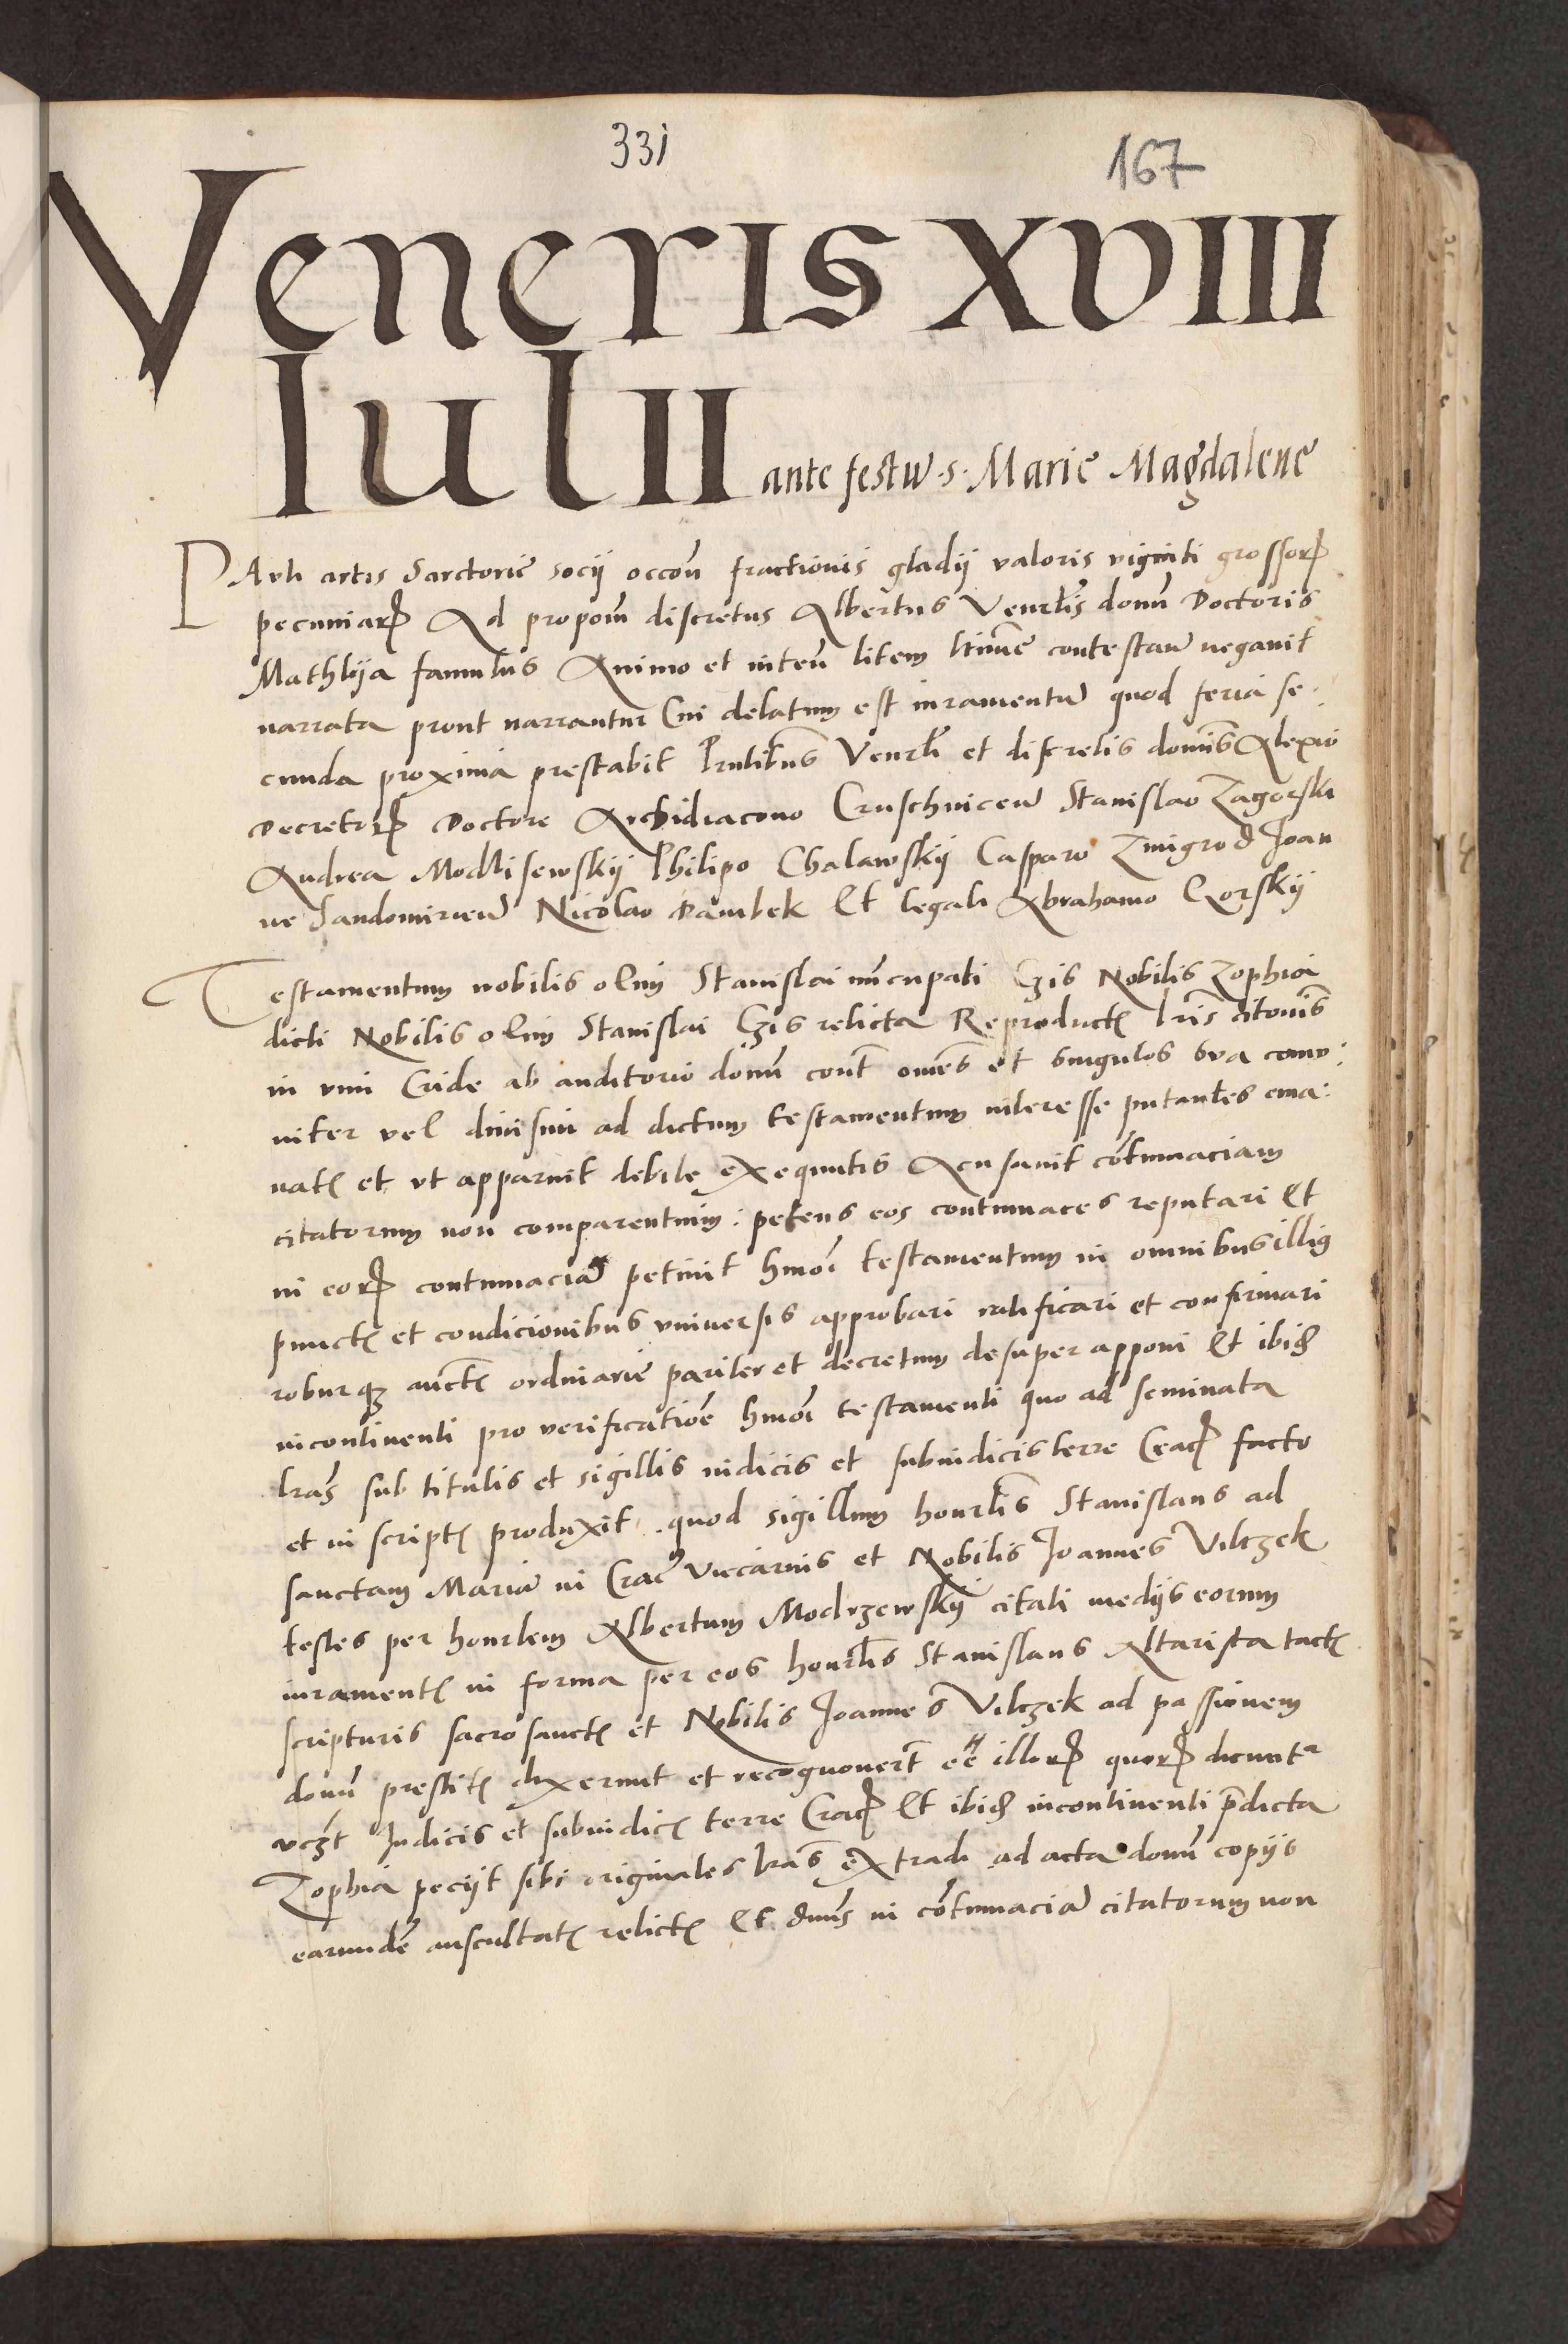 331
167
Veneris XVIII
Iulii ante festū · s · Marie Magdalene
PAuli artis Sarctorie socij occōn fractionis gladij valoris viginti grossorꝝ
pecuniarꝝ Ad propoīm discretus Albertus Venrlīs domī Doctoris
Mathlyia famulus Animo et inteīn litem contestan̄ negavit
narrata prout narrantur Cui delatum est iuramentū quod feria se:
cunda proxima prestabit Pn̄tibus Venrlī et discretis domīs Alexio
Decretorꝝ Doctore Archidiacono Cruschvicen̄ Stanislao Zagorski
Andrea Modlisewskij Philipo Chalawskij Casparo Zmigrod Joan
ne Sandomirien̄ Nicolao Dambek Et legali Abrahamo Gorskij
Testamentum nobilis olim Stanislai nūncupati Gzis Nobilis Zophia
dicti Nobilis olim Stanislai Gzis relicta Reproductꝭ lrīs citōnis
in vim Cride ab auditorio domī cont̄ omēs et singulos sua comu:
niter vel divisim ad dictum testamentum interesse putantes ema:
natꝭ et vt apparuit debite exequutis Acusavit cōtumaciam
citatorum non comparentium: petens eos contumaces reputari Et
in eorꝝ contumaciā petivit hmōi testamentum in omnibus illis
punctꝭ et condicionibus vniversis approbari ratificari et confirmari
roburqꝫ auct̄ꝭ ordinarie pariter et decretum desuper apponi Et ibidꝫ
incontinenti pro verificatiōe hmōi testamenti quo ad seminata
lrās sub titulis et sigillis iudicis et subiudicis terre Cracꝝ facto
et in scriptꝭ produxit quod sigillum honrlīs Stanislaus ad
sanctam Mariā in Crac̄ Vicarius et Nobilis Joannes Vilczek
testes per honrlem Albertum Modrzewskij citati medijs eorum
iuramentꝭ in forma per eos honrlīs Stanislaus Altarista tactꝭ
scripturis sacrosanctꝭ et Nobilis Joannes Vilczek ad passionem
domī prestitꝭ dixerunt et recognovert̄ eē illorꝝ quorꝝ dicuntr
vcꝫt Judicis et subiudicꝭ terre Cracꝝ Et ibidꝫ incontinenti p̄dicta
Zophia pecijt sibi originales lrās extradi ad acta domī copijs
earundē auscultatꝭ relictꝭ Et dn̄s in cōtumaciā citatorum non